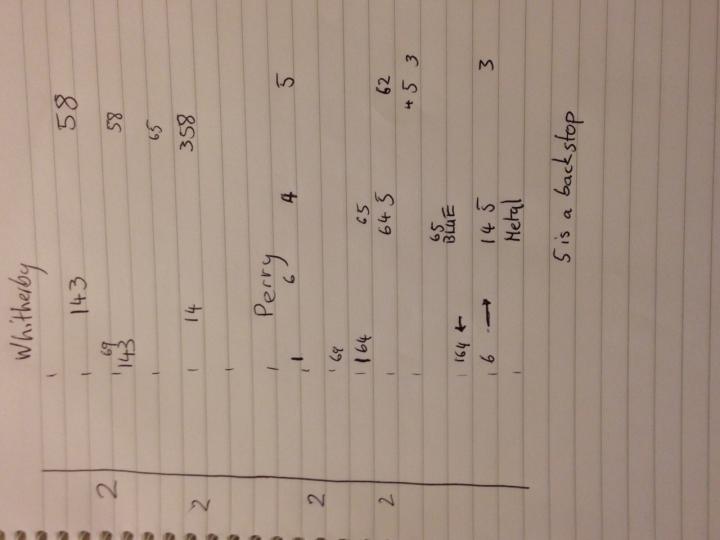 Whitherby
143 58
2 69 58
143
65
2 14 358
Perry
1 6 4 5
2
69
164 65
2 645 62
453
65
164 ↑ BLUE
6 ↓ 145 3
Metal
5 is a backstop